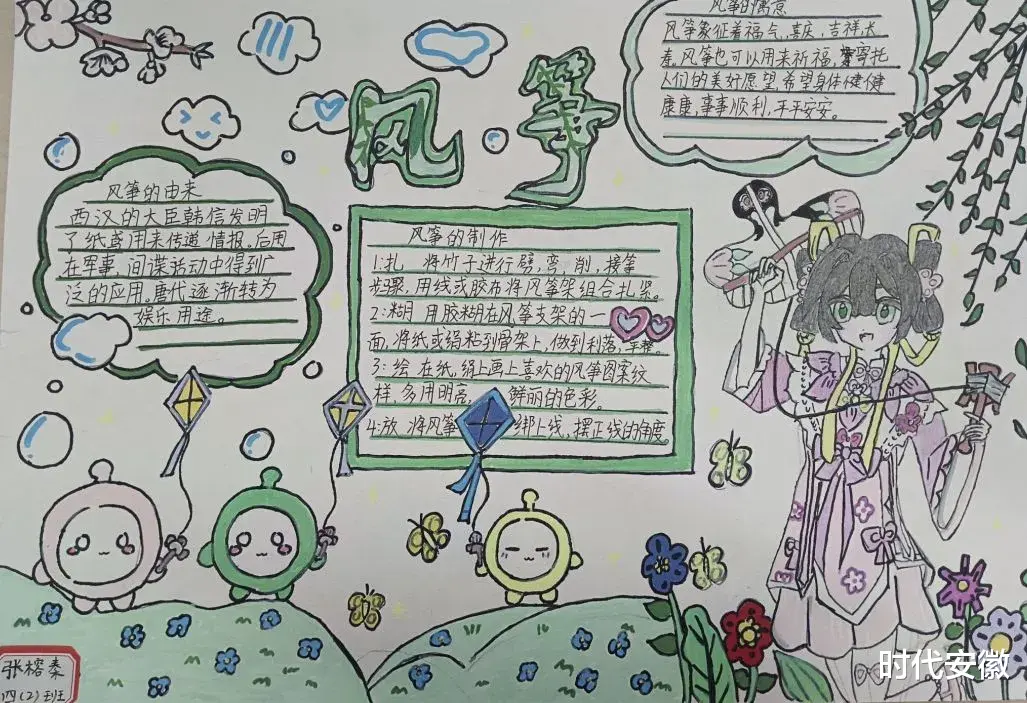 风筝
风筝的寓意
风筝象征着福气,喜庆,吉祥,长
寿。风筝也可以用来祈福,寄托
人们的美好愿望,希望身体健健
康康,事事顺利,平平安安。
风筝的由来
西汉的大臣韩信发明
了纸鸢用来传递情报。后用
在军事,间谍活动中得到广
泛的应用。唐代逐渐转为
娱乐用途。
风筝的制作
1:扎 将竹子进行劈,弯,削,接等
步骤,用线或胶布将风筝架组合扎紧。
2:糊 用胶糊在风筝支架的一
面,将纸或绢粘到骨架上,做到利落,平整。
3:绘 在纸,绢上画上喜欢的风筝图案纹
样,多用明亮,鲜丽的色彩。
4:放 将风筝 绑上线,摆正线的角度。
张榕秦
四(2)班
时代安徽